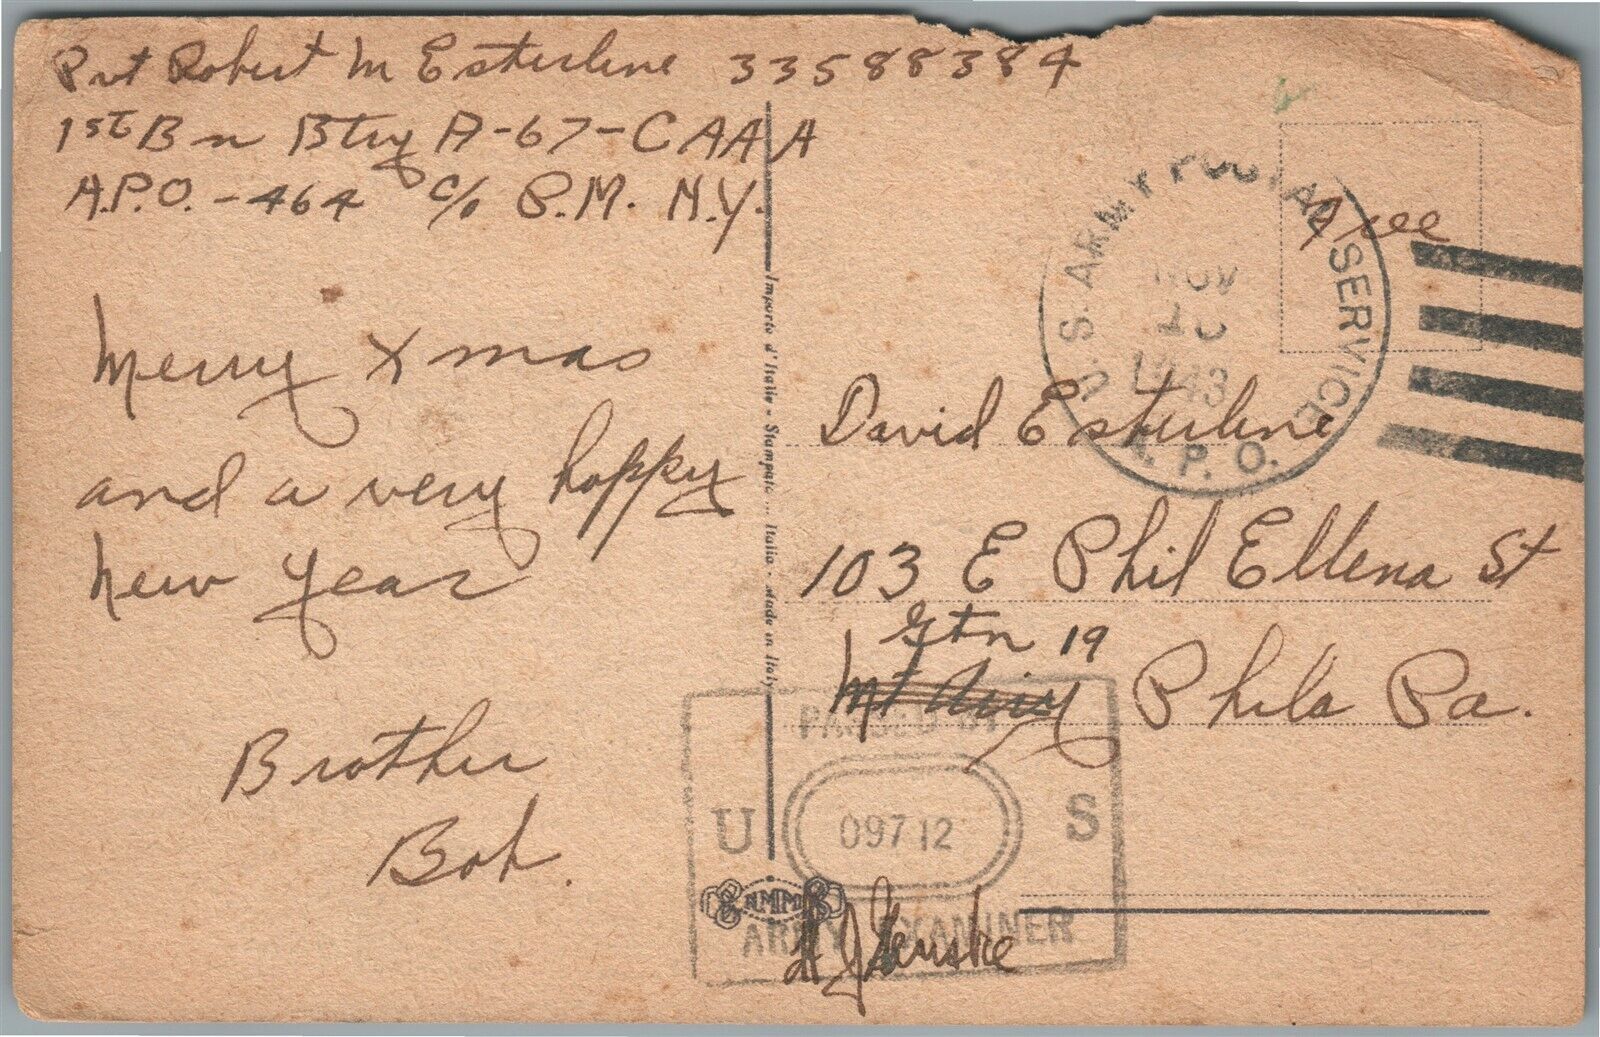 Pvt Robert M Esterline 33588384
1st Bn Btry A-67-CAAA
A.P.O. - 464 c/o P.M. N.Y.
Merry Xmas
and a very happy
new year
Brother
Bob.
Importé d'Italie - Stampato ... Italia - Made in Italy
Free
U.S. ARMY POSTAL SERVICE
NOV
1943
A.P.O.
David Esterline
103 E Phil Ellena St
Gtn 19
Mt Airy Phila Pa.
PASSED BY
U 09712 S
ARMY EXAMINER
NMM